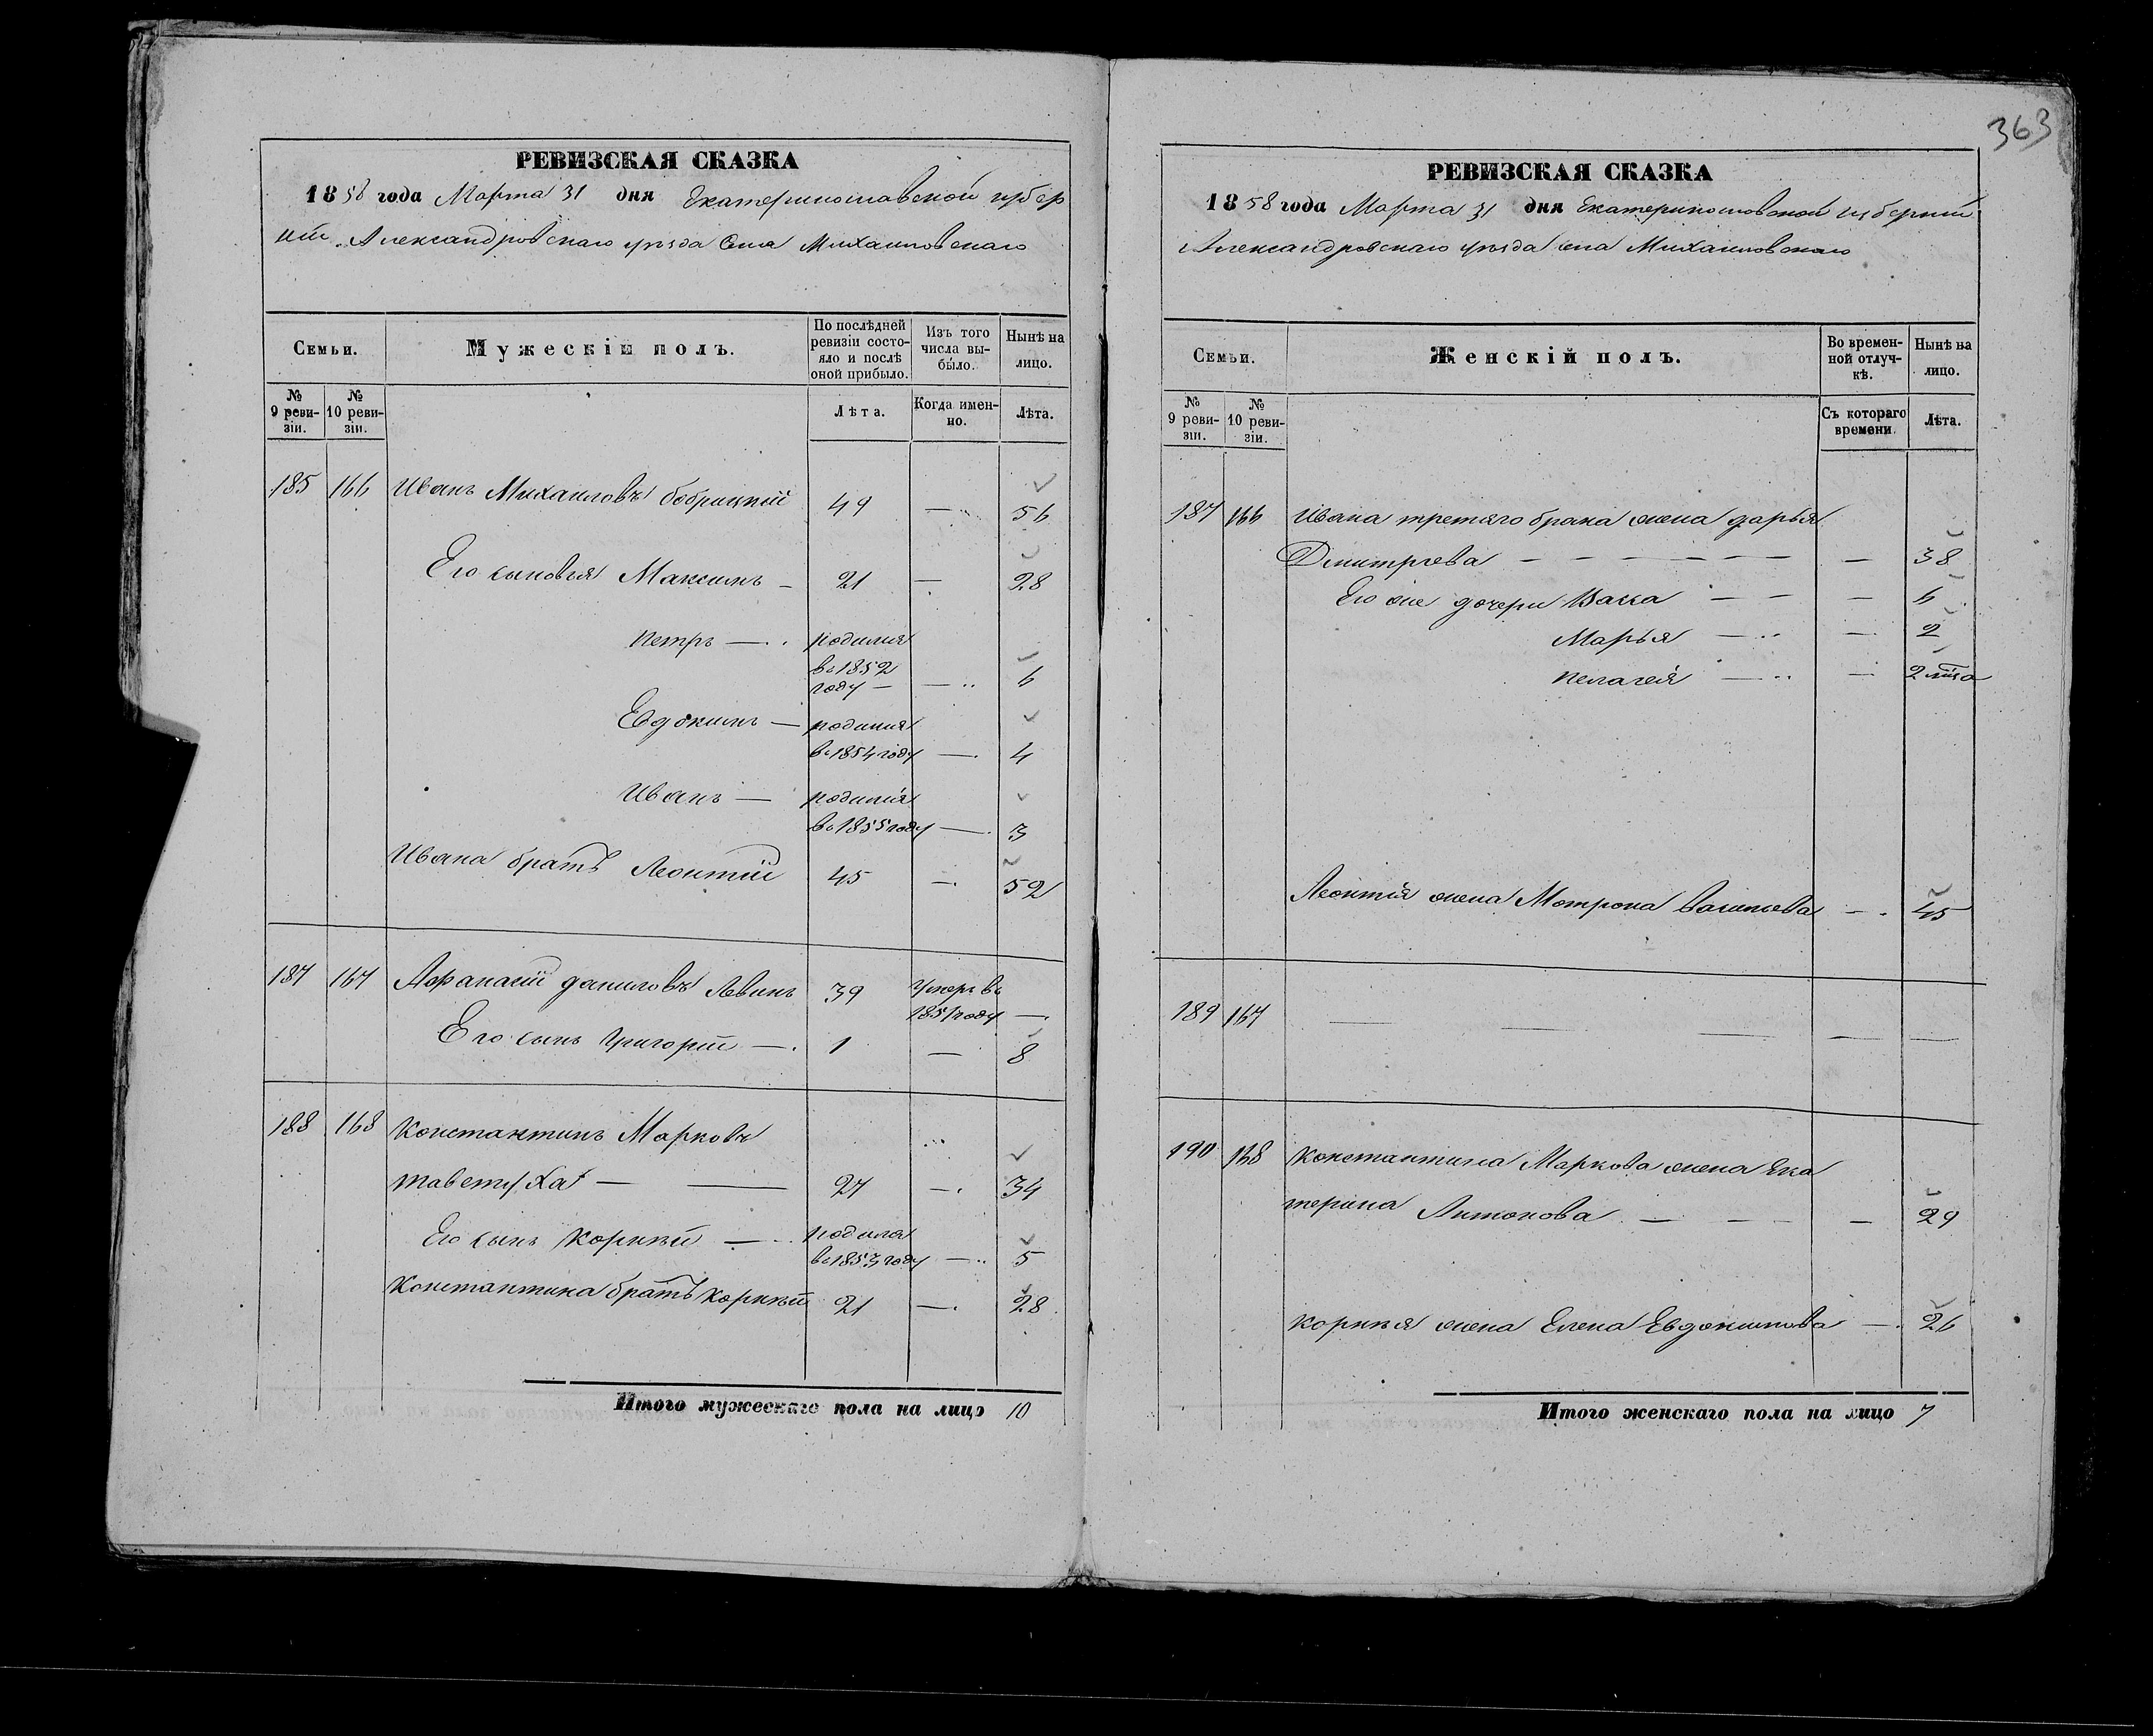 363
РЕВИЗСКАЯ СКАЗКА
1858 года Марта 31 дня Екатеринославской губер
ніи Александровскаго уѣзда Села Михайловскаго
Семьи.
Мужескій полъ.
По послѣдней ревизіи состояло и послѣ оной прибыло.
Изъ того числа выбыло.
Нынѣ на лицо.
№ 9 ревизіи.
№ 10 ревизіи.
Лѣта.
Когда именно.
Лѣта.
185 166 Иванъ Михайловъ Бобрицкій 49 — 56
Его сыновья Максимъ — 21 — 28
Петръ — родился
въ 1852
году — — 6
Евдокимъ — родился
въ 1854 году — 4
Иванъ — родился
въ 1855 году — 3
Ивана братъ Леонтій 45 — 52
187 167 Афанасій Даниловъ Левинъ 39 Умеръ въ
1851 году —
Его сынъ Григорій — 1 — 8
188 168 Константинъ Марковъ
Товстуха — — 27 — 34
Его сынъ Корнѣй — родился
въ 1853 году — 5
Константина братъ Корнѣй 21 — 28
Итого мужескаго пола на лицо 10
РЕВИЗСКАЯ СКАЗКА
1858 года Марта 31 дня Екатеринославской губерніи
Александровскаго уѣзда села Михайловскаго
Семьи.
Женскій полъ.
Во временной отлучкѣ.
Нынѣ на лицо.
№ 9 ревизіи.
№ 10 ревизіи.
Съ котораго времени
Лѣта.
187 166 Ивана третяго брака жена Дарья
Дмитріева — — — — — — — 38
Его же дочери Васса — — — 6
Марья — — 2
Пелагея — — 2 лѣта
Леонтія жена Мотрона Васильева — 45
189 167 — — — — —
190 168 Константина Маркова жена Ека
терина Антонова — — — — 29
Корнѣя жена Елена Евдокимова — 26
Итого женскаго пола на лицо 7